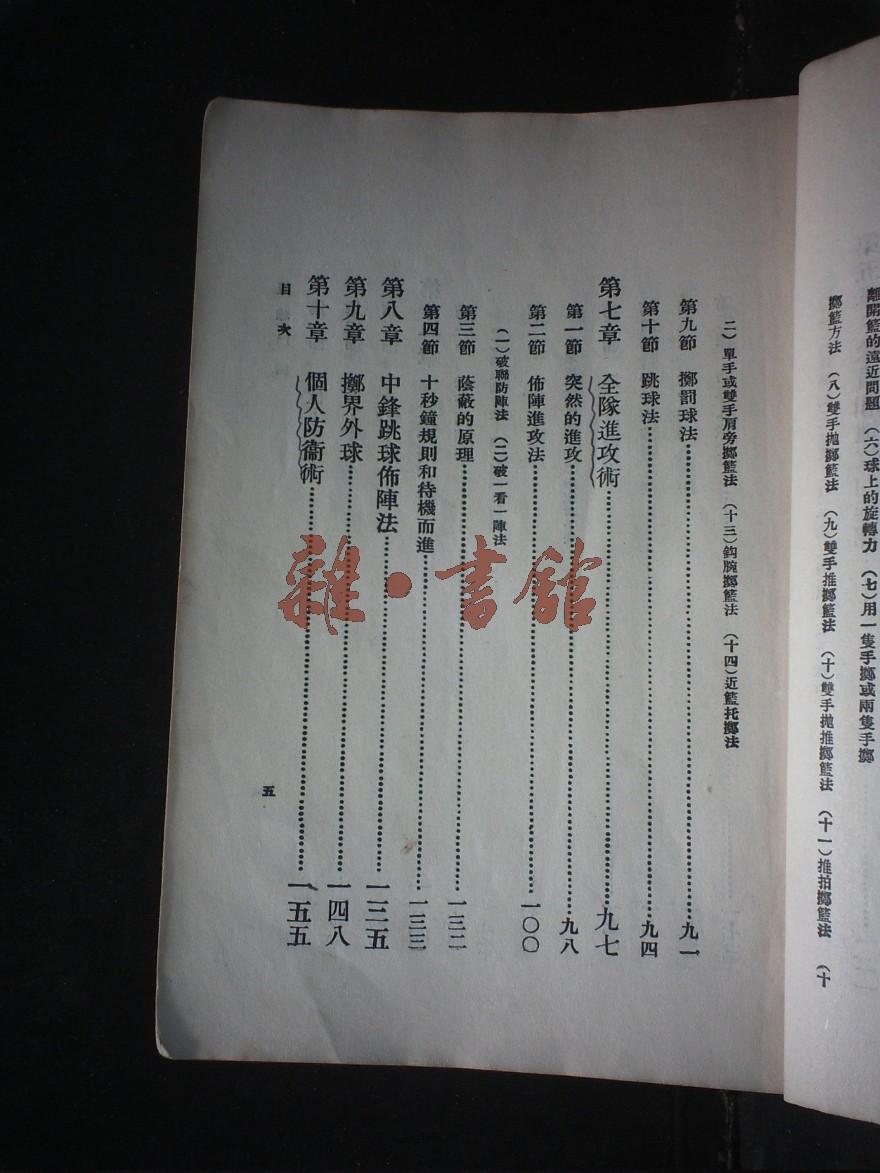 離開籃的遠近問題 （六）球上的旋轉力 （七）用一隻手擲或兩隻手擲
擲籃方法 （八）雙手拋擲籃法 （九）雙手推擲籃法 （十）雙手拋推擲籃法 （十一）推拍擲籃法 （十
二）單手或雙手肩旁擲籃法 （十三）鈎腕擲籃法 （十四）近籃托擲法
第九節 擲罰球法……九一
第十節 跳球法……九四
第七章 全隊進攻術……九七
第一節 突然的進攻……九八
第二節 佈陣進攻法……一〇〇
（一）破聯防陣法 （二）破一看一陣法
第三節 蔭蔽的原理……一三二
第四節 十秒鐘規則和待機而進……一三三
第八章 中鋒跳球佈陣法……一三五
第九章 擲界外球……一四八
第十章 個人防衞術……一五五
目次
五
雜·書館